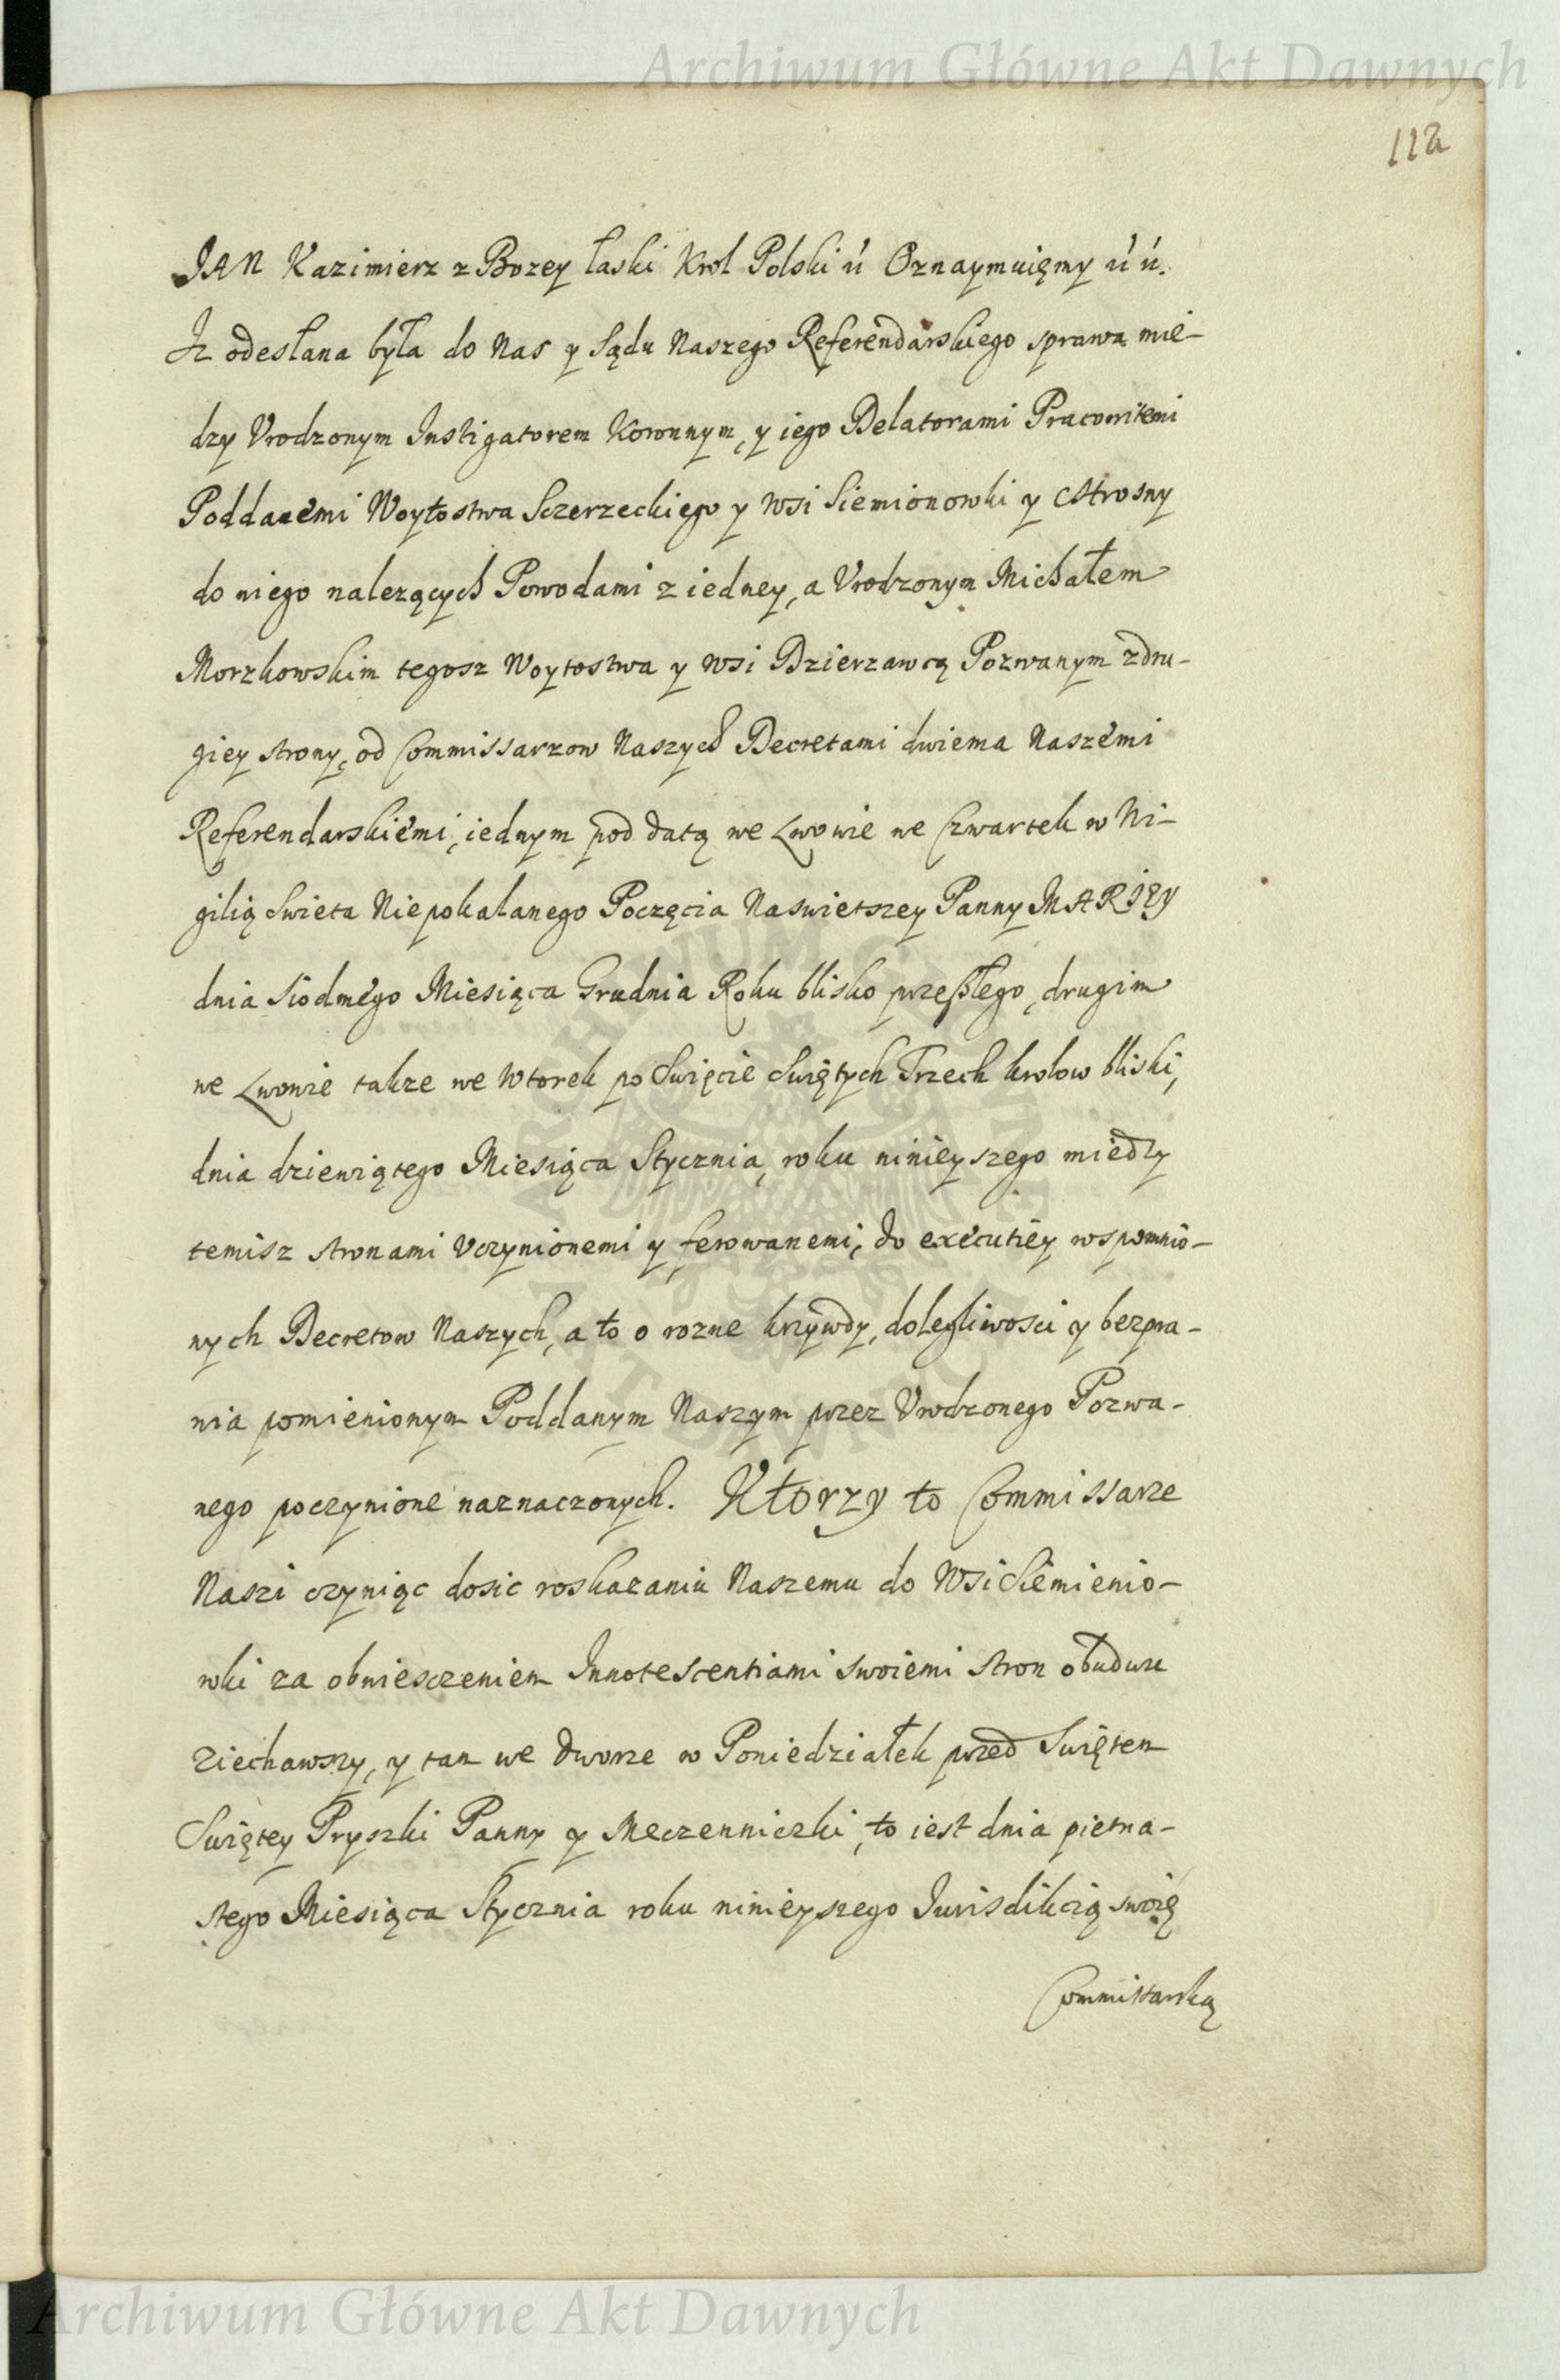 Archiwum Główne Akt Dawnych
112
JAN Kazimierz z Bozey łaski Krol Polski ú Oznaymuięmy ú ú.
Iz odesłana była do Nas y Sądu Naszego Referendarskiego sprawa mie-
dzy Vrodzonym Instigatorem Koronnym, y iego Delatorami Pracowitemi
Poddanemi Woytostwa Sczerzeckiego y Wsi Siemionowki y Ostrosny
do niego nalezących Powodami z iedney, a Vrodzonym Michałem
Morzkowskim tegosz Woytostwa y Wsi Dzierzawcą Pozwanym z dru-
giey strony, od Commissarzow Naszych Decretami dwiema Naszemi
Referendarskiemi, iednym pod datą we Lwowie we Czwartek w Wi-
gilią Swieta Niepokalanego Poczęcia Naswietszey Panny MARIEY
dnia siodmego Miesiąca Grudnia Roku blisko przeszłego, drugim
we Lwowie takze we Wtorek po Swięcie Swiętych Trzech krolow bliski,
dnia dziewiątego Miesiąca Stycznia, roku ninieyszego miedzy
temisz stronami Vczynionemi y ferowanemi, do executiey wspomnio-
nych Decretow Naszych, a to o rozne krzywdy, dolegliwosci y bezpra-
wia pomienionym Poddanym Naszym przez Vrodzonego Pozwa-
nego poczynione naznaczonych. Ktorzy to Commissarze
Naszi czyniąc dosic roskazaniu Naszemu do Wsi Siemienio-
wki za obwiesczeniem Innotescentiami swoiemi stron obudwu
ziechawszy, y tam we dworze w Poniedziałek przed Swiętem
Swiętey Pryszki Panny y Meczenniczki, to iest dnia pietna-
stego Miesiąca Stycznia roku ninieyszego Iurisdikcią swoię
Commissarską
Archiwum Główne Akt Dawnych